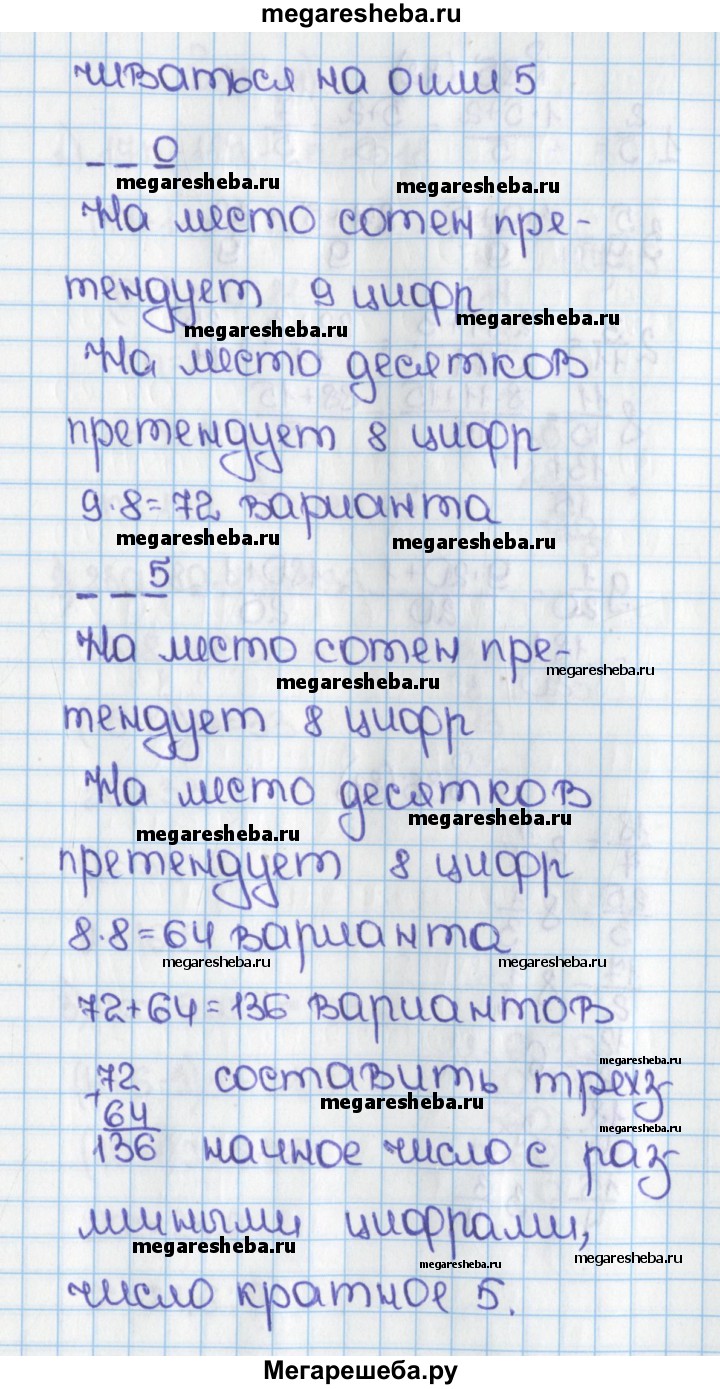 megaresheba.ru
чиваться на 0 или 5
_ _ 0
megaresheba.ru megaresheba.ru
На место сотен пре-
тендует 9 цифр
megaresheba.ru megaresheba.ru
На место десятков
претендует 8 цифр
9·8=72 варианта
megaresheba.ru megaresheba.ru
_ _ 5
На место сотен пре-
megaresheba.ru megaresheba.ru
тендует 8 цифр
На место десятков
megaresheba.ru megaresheba.ru
претендует 8 цифр
8·8=64 варианта
megaresheba.ru megaresheba.ru
72+64=136 вариантов
megaresheba.ru
+72 составить трехз
megaresheba.ru megaresheba.ru
64
136 начное число с раз
личными цифрами,
megaresheba.ru megaresheba.ru megaresheba.ru
число кратное 5.
Мегарешеба.ру